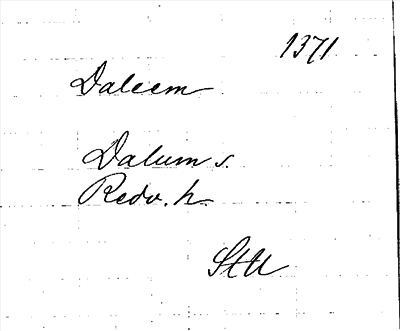 1371
Daleem
Dalum s.
Redv. h.
StU